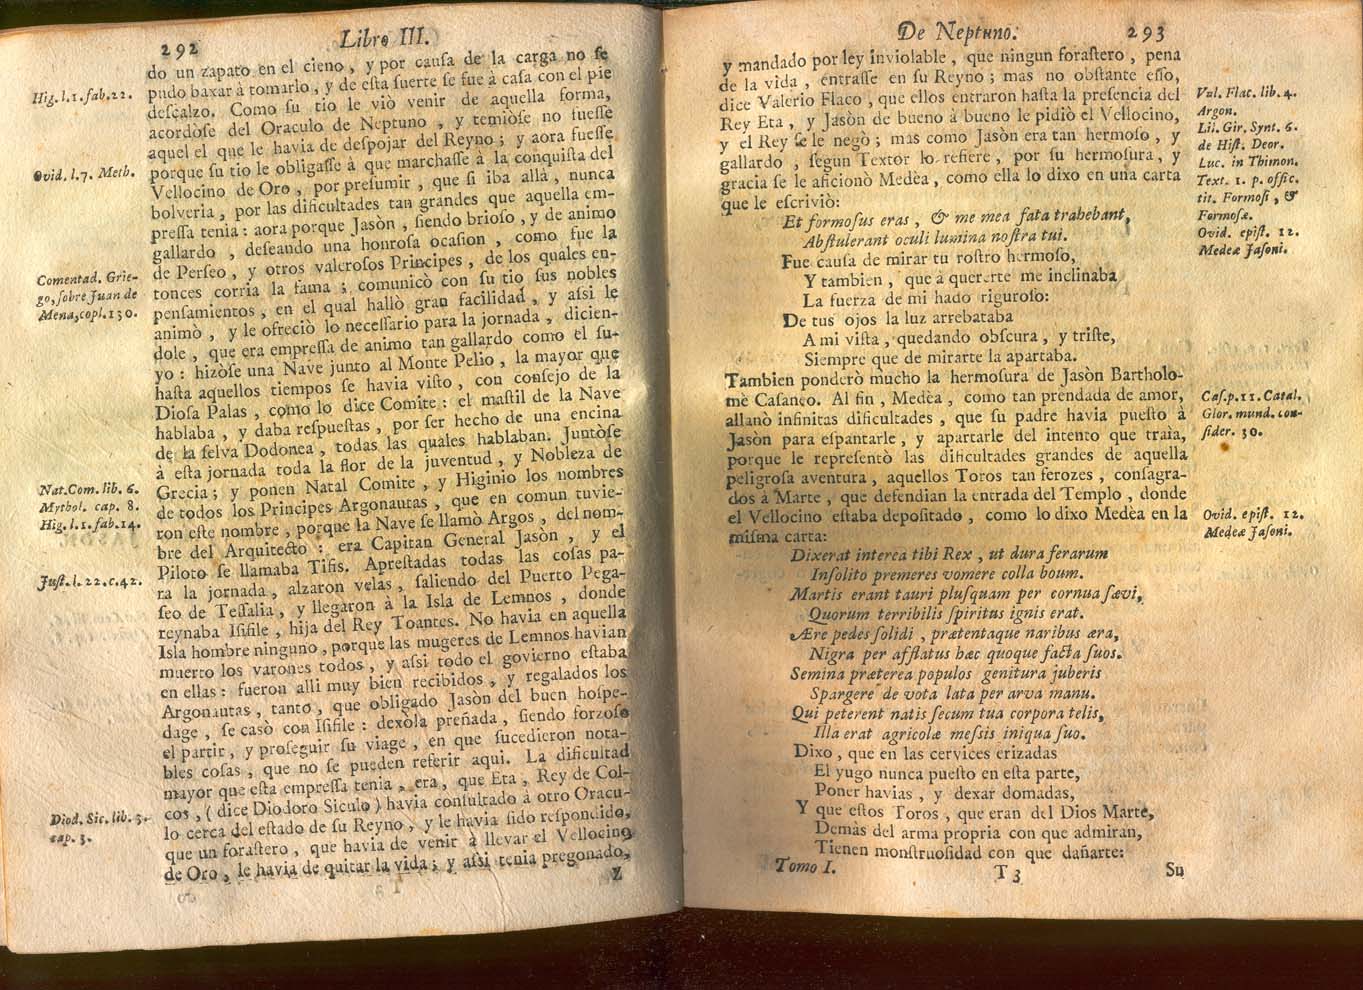 292 Libro III.
do un zapato en el cieno, y por causa de la carga no se
pudo baxar à tomarlo, y de esta suerte se fue à casa con el pie
descalzo. Como su tio le viò venir de aquella forma,
acordòse del Oraculo de Neptuno, y temiòse no fuesse
aquel el que le havia de despojar del Reyno; y aora fuesse
porque su tio le obligasse à que marchasse à la conquista del
Vellocino de Oro, por presumir, que si iba allà, nunca
bolveria, por las dificultades tan grandes que aquella em-
pressa tenia: aora porque Jasòn, siendo brioso, y de animo
gallardo, deseando una honrosa ocasion, como fue la
de Perseo, y otros valerosos Principes, de los quales en-
tonces corria la fama; comunicò con su tio sus nobles
pensamientos, en el qual hallò gran facilidad, y assi le
animò, y le ofreciò lo necessario para la jornada, dicien-
dole, que era empressa de animo tan gallardo como el su-
yo: hizòse una Nave junto al Monte Pelio, la mayor que
hasta aquellos tiempos se havia visto, con consejo de la
Diosa Palas, como lo dice Comite: el mastil de la Nave
hablaba, y daba respuestas, por ser hecho de una encina
de la selva Dodonea, todas las quales hablaban. Juntòse
à esta jornada toda la flor de la juventud, y Nobleza de
Grecia; y ponen Natal Comite, y Higinio los nombres
de todos los Principes Argonautas, que en comun tuvie-
ron este nombre, porque la Nave se llamò Argos, del nom-
bre del Arquitecto: era Capitan General Jasòn, y el
Piloto se llamaba Tifis. Aprestadas todas las cosas pa-
ra la jornada, alzaron velas, saliendo del Puerto Pega-
seo de Tessalia, y llegaron à la Isla de Lemnos, donde
reynaba Isifile, hija del Rey Toantes. No havia en aquella
Isla hombre ninguno, porque las mugeres de Lemnos havian
muerto los varones todos, y assi todo el govierno estaba
en ellas: fueron alli muy bien recibidos, y regalados los
Argonautas, tanto, que obligado Jasòn del buen hospe-
dage, se casò con Isifile: dexòla preñada, siendo forzoso
el partir, y proseguir su viage, en que sucedieron nota-
bles cosas, que no se pueden referir aqui. La dificultad
mayor que esta empressa tenia, era, que Eta, Rey de Col-
cos, (dice Diodoro Siculo) havia consultado à otro Oracu-
lo cerca del estado de su Reyno, y le havia sido respondido,
que un forastero, que havia de venir à llevar el Vellocino
de Oro, le havia de quitar la vida; y assi tenia pregonado,
Z
Hig. l.1. fab.22.
Ovid. l.7. Meth.
Comentad. Grie-
go, sobre Juan de
Mena, copl. 130.
Nat. Com. lib. 6.
Mythol. cap. 8.
Hig. l.1. fab.14.
Just. l. 22. c. 42.
Diod. Sic. lib. 3.
cap. 3.
De Neptuno. 293
y mandado por ley inviolable, que ningun forastero, pena
de la vida, entrasse en su Reyno; mas no obstante esso,
dice Valerio Flaco, que ellos entraron hasta la presencia del
Rey Eta, y Jasòn de bueno à bueno le pidiò el Vellocino,
y el Rey se le negò; mas como Jasòn era tan hermoso, y
gallardo, segun Textor lo refiere, por su hermosura, y
gracia se le aficionò Medèa, como ella lo dixo en una carta
que le escriviò:
Et formosus eras, & me mea fata trahebant,
Abstulerant oculi lumina nostra tui.
Fue causa de mirar tu rostro hermoso,
Y tambien, que à quererte me inclinaba
La fuerza de mi hado riguroso:
De tus ojos la luz arrebataba
A mi vista, quedando obscura, y triste,
Siempre que de mirarte la apartaba.
Tambien ponderò mucho la hermosura de Jasòn Bartholo-
mè Casaneo. Al fin, Medèa, como tan prendada de amor,
allanò infinitas dificultades, que su padre havia puesto à
Jasòn para espantarle, y apartarle del intento que traìa,
porque le representò las dificultades grandes de aquella
peligrosa aventura, aquellos Toros tan ferozes, consagra-
dos à Marte, que defendian la entrada del Templo, donde
el Vellocino estaba depositado, como lo dixo Medèa en la
misma carta:
Dixerat interea tibi Rex, ut dura ferarum
Insolito premeres vomere colla boum.
Martis erant tauri plusquam per cornua sævi,
Quorum terribilis spiritus ignis erat.
Ære pedes solidi, prætentaque naribus æra,
Nigra per afflatus hæc quoque facta suos.
Semina præterea populos genitura juberis
Spargere de vota lata per arva manu.
Qui peterent natis secum tua corpora telis,
Illa erat agricolæ messis iniqua suo.
Dixo, que en las cervices erizadas
El yugo nunca puesto en esta parte,
Poner havias, y dexar domadas,
Y que estos Toros, que eran del Dios Marte,
Demàs del arma propria con que admiran,
Tienen monstruosidad con que dañarte:
Tomo I. T 3 Su
Val. Flac. lib. 4.
Argon.
Lil. Gir. Synt. 6.
de Hist. Deor.
Luc. in Thimon.
Text. 1. p. offic.
tit. Formosi, &
Formosæ.
Ovid. epist. 12.
Medeæ Jasoni.
Cas. p. 11. Catal.
Glor. mund. con-
sider. 30.
Ovid. epist. 12.
Medeæ Jasoni.